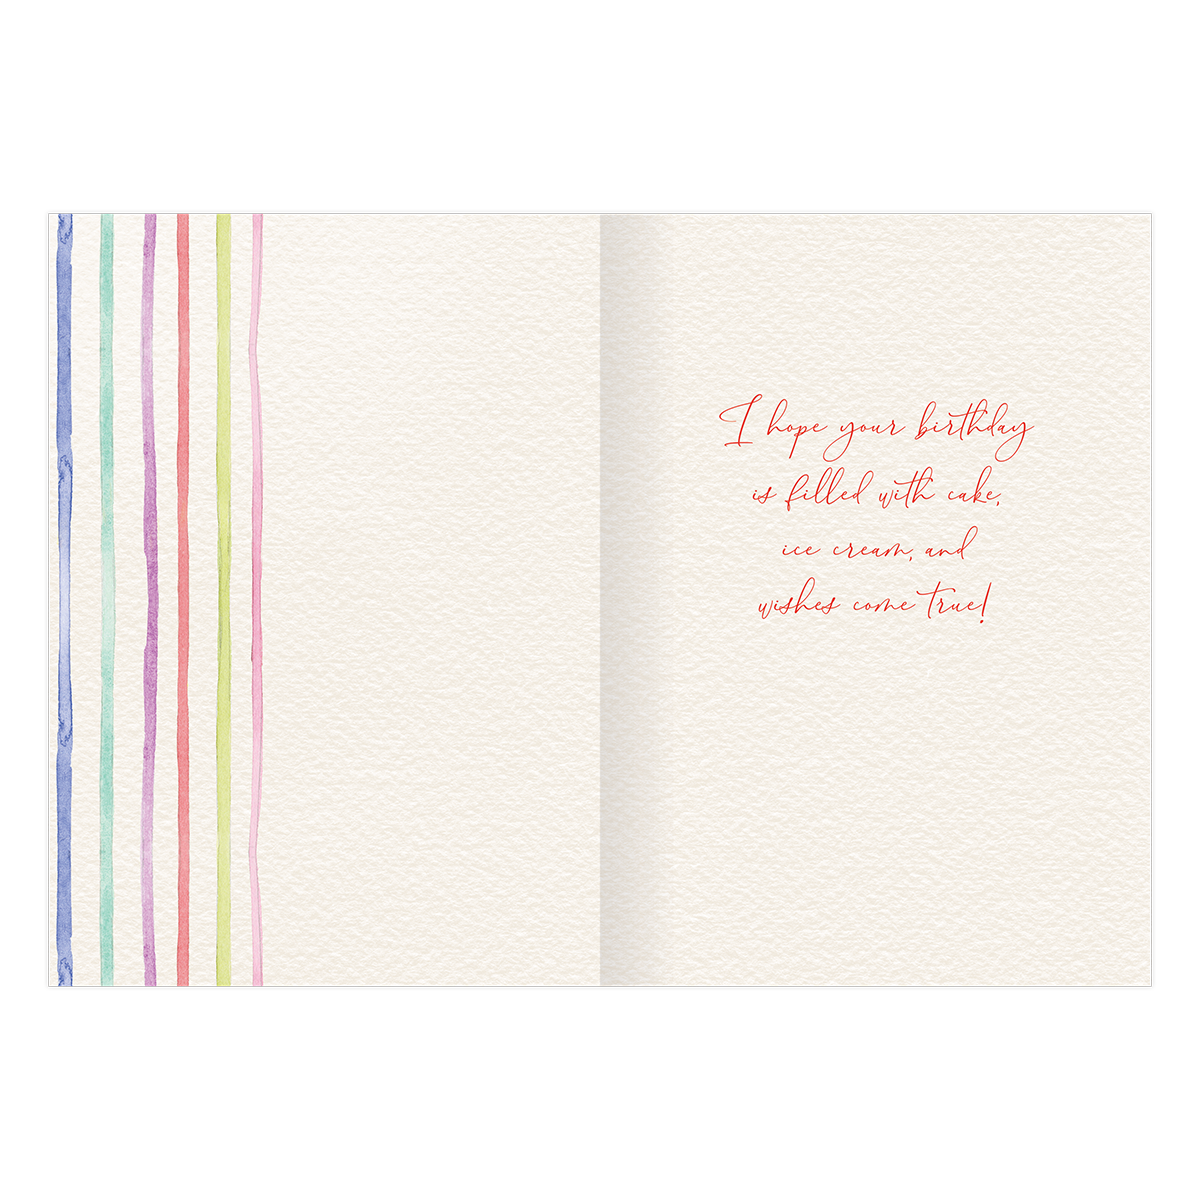 I hope your birthday
is filled with cake,
ice cream, and
wishes come true!